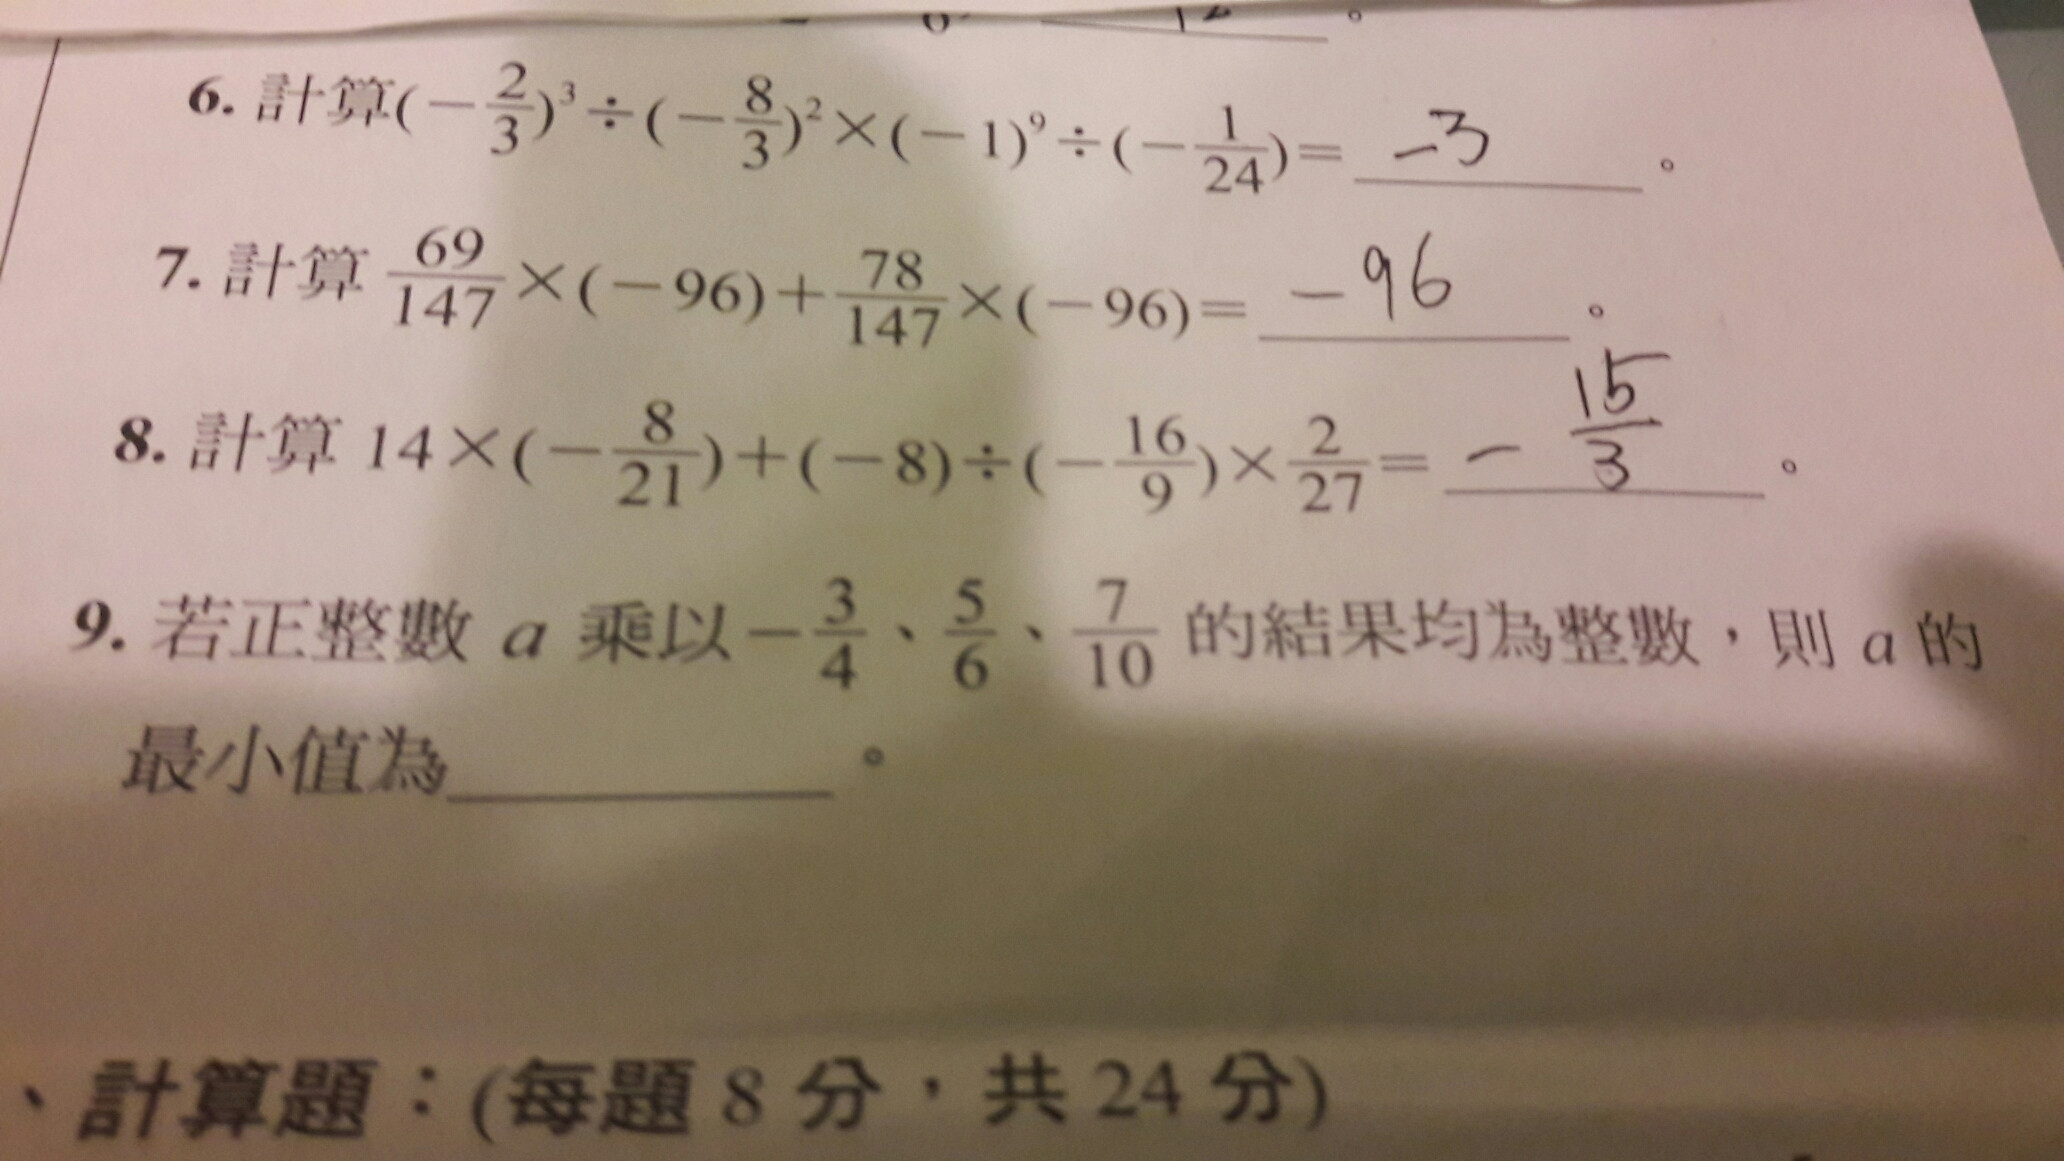 6. 計算(−2/3)³÷(−8/3)²×(−1)⁹÷(−1/24)= −3 。
7. 計算 69/147×(−96)+78/147×(−96)= −96 。
8. 計算 14×(−8/21)+(−8)÷(−16/9)×2/27= −15/3 。
9. 若正整數 a 乘以−3/4、5/6、7/10 的結果均為整數，則 a 的
最小值為________。
、計算題：(每題 8 分，共 24 分)